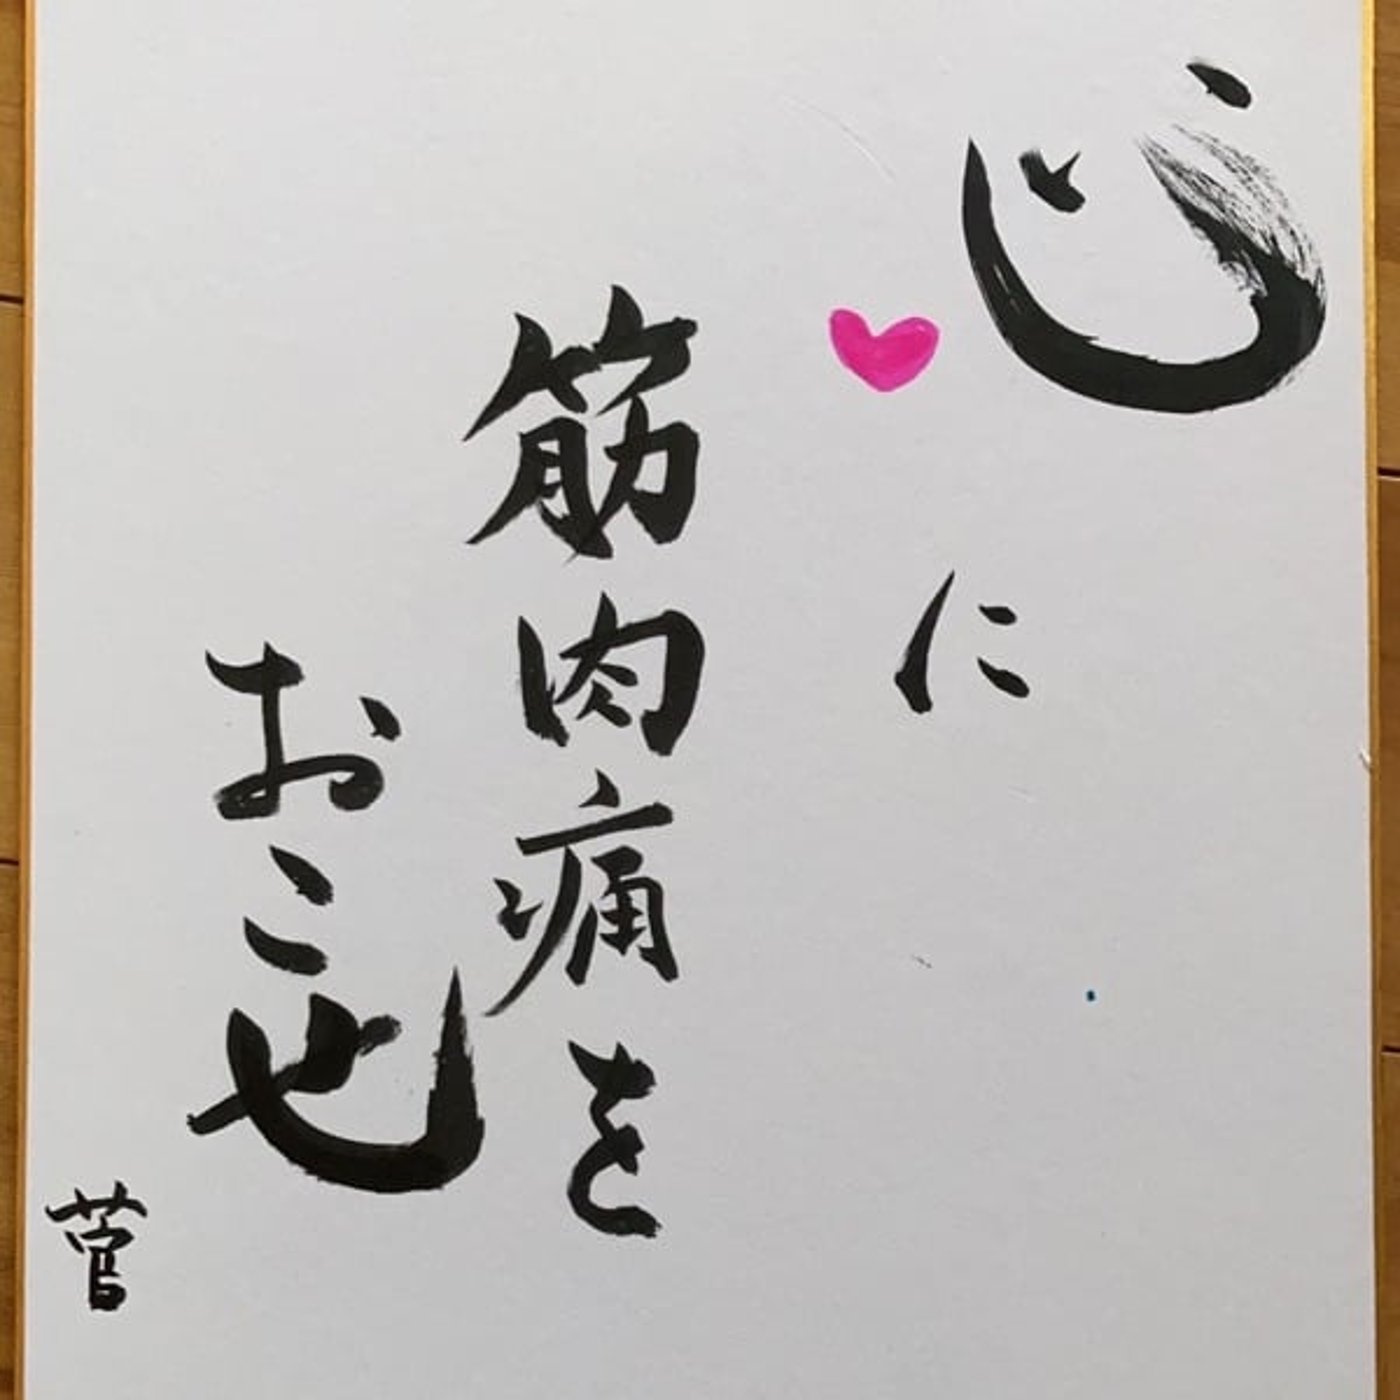 心に
筋肉痛を
おこせ
菅